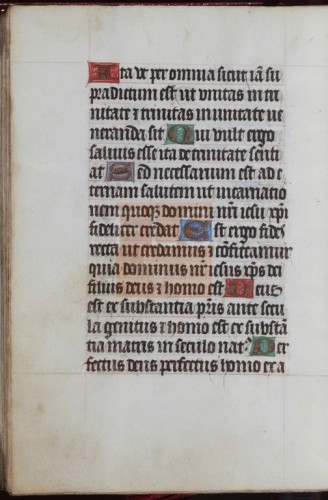 Ita ut per omnia sicut iā su
pradictum est ut unitas in tri
nitate ⁊ trinitas in unitate ue
neranda sit Qui uult ergo
saluus esse ita de trinitate senti
at Sed necessarium est ad e
ternam salutem ut incarnatio
nem quoqꝫ domini nr̄i iesu xp̄i
fideliter credat Est ergo fides
recta ut credamus ⁊ cōfiteamur
quia dominus nr̄ iesus xp̄s dei
filius deus ⁊ homo est Deus
est ex substantia pr̄is ante secu
la genitus ⁊ homo est ex substā
tia matris in seculo natꝰ Per
fectus deus perfectus homo ex a